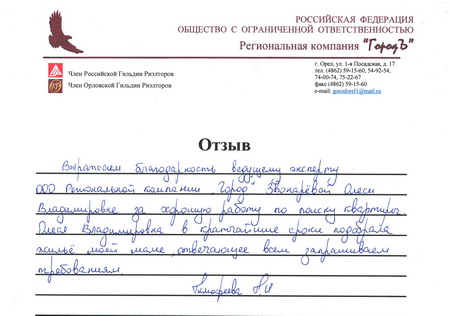 РОССИЙСКАЯ ФЕДЕРАЦИЯ
ОБЩЕСТВО С ОГРАНИЧЕННОЙ ОТВЕТСТВЕННОСТЬЮ
Региональная компания "Городъ"
г. Орел, ул. 1-я Посадская, д. 17
тел. (4862) 59-15-60, 54-92-54,
74-00-74, 75-22-67
факс (4862) 59-15-60
e-mail: gorodorel1@mail.ru
Член Российской Гильдии Риэлторов
Член Орловской Гильдии Риэлторов
Отзыв
Выражаем благодарность ведущему эксперту
ООО Региональной компании "Город" Звонарёвой Олеси
Владимировне за хорошую работу по поиску квартиры.
Олеся Владимировна в кратчайшие сроки подобрала
жильё моей маме, отвечающее всем запрашиваем
требованиям
Тимофеева Н.И